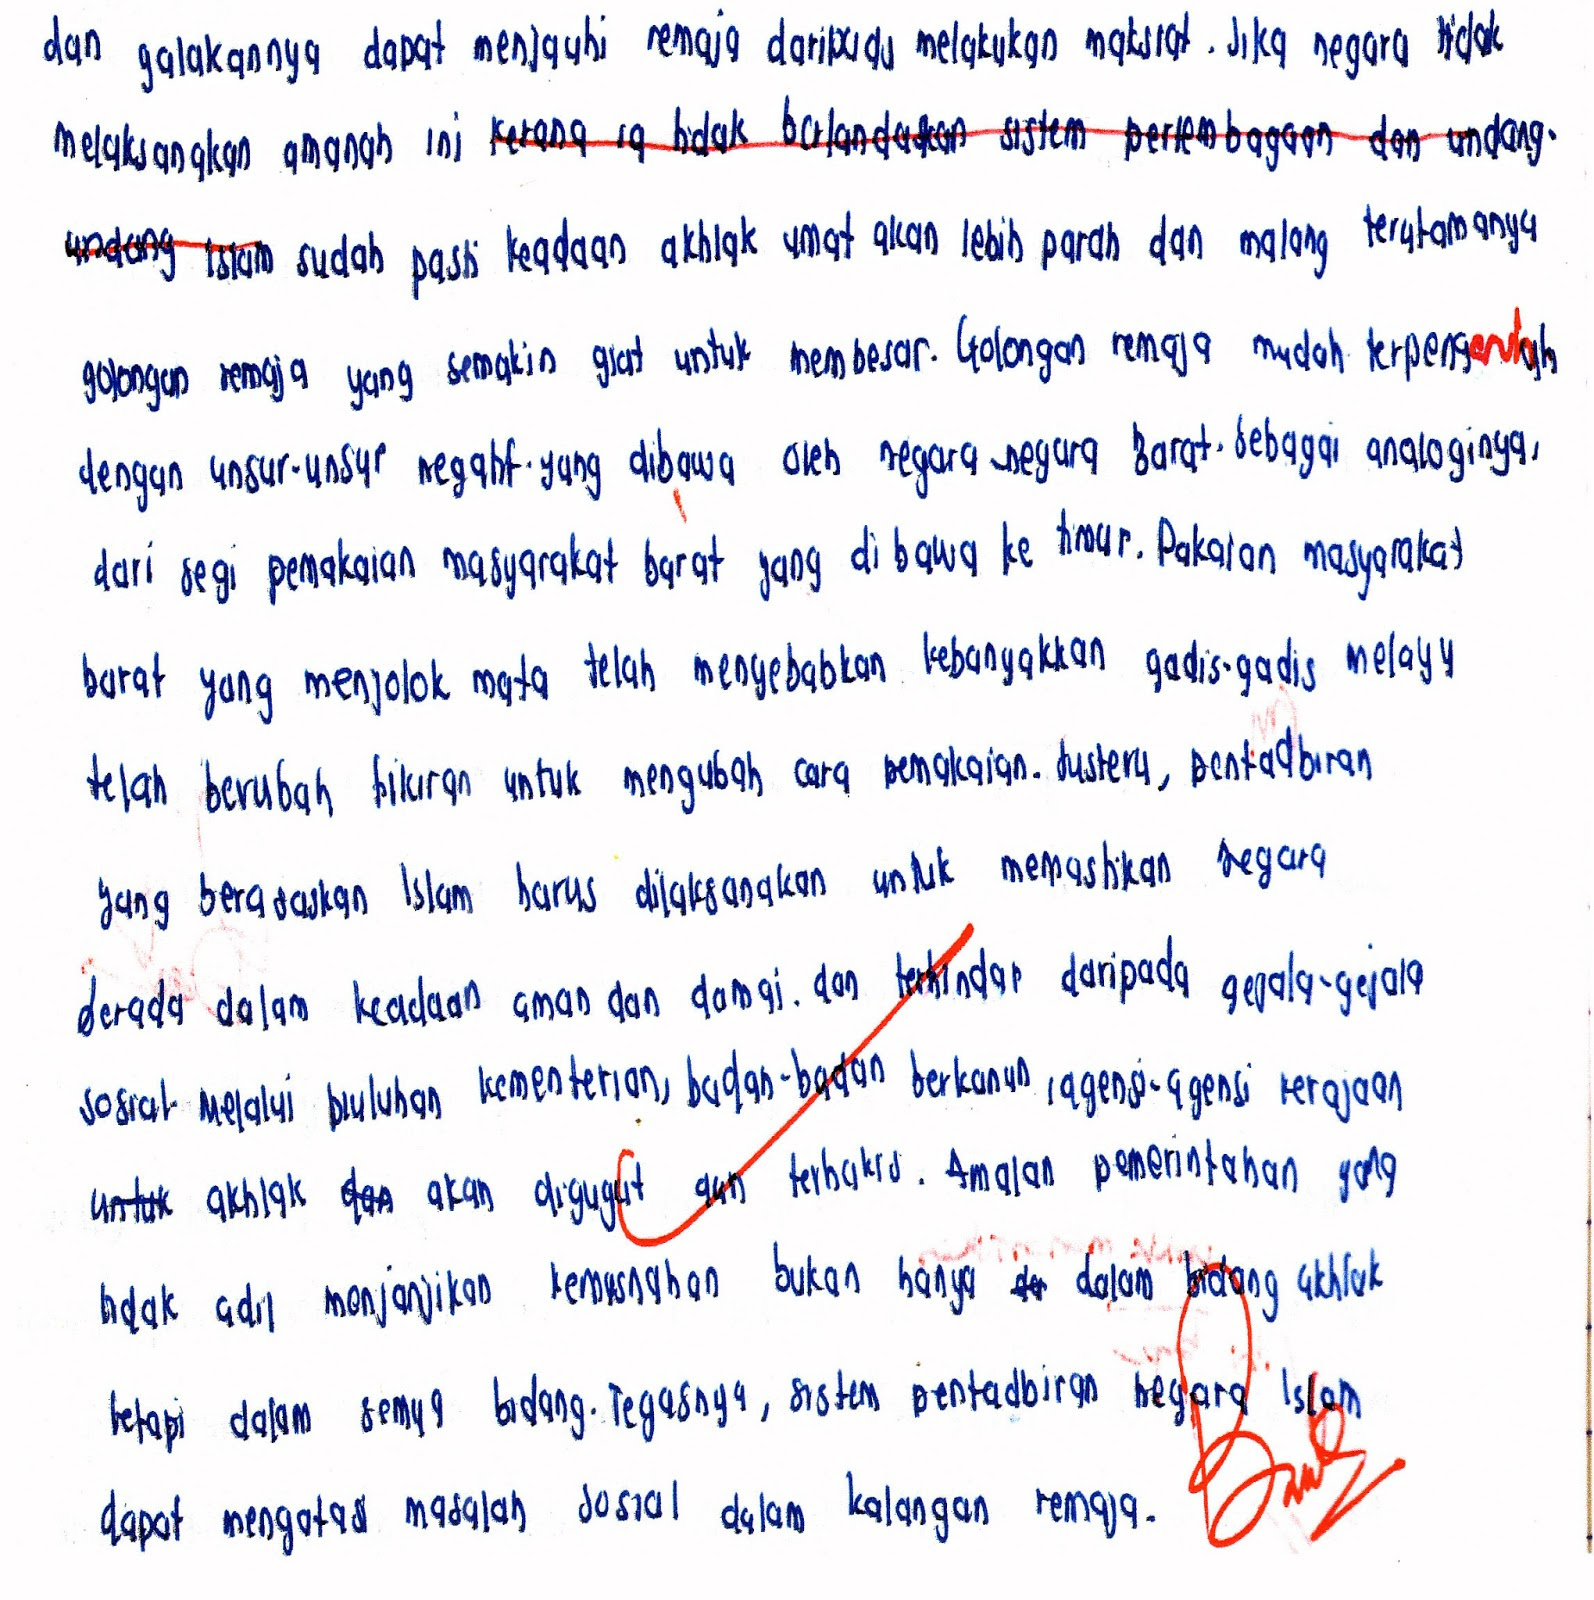 dan galakannya dapat menjauhi remaja daripada melakukan maksiat. Jika negara tidak
melaksanakan amanah ini kerana ia tidak berlandaskan sistem perlembagaan dan undang-
undang Islam sudah pasti keadaan akhlak umat akan lebih parah dan malang terutamanya
golongan remaja yang semakin giat untuk membesar. Golongan remaja mudah terpengaruh
dengan unsur-unsur negatif yang dibawa oleh negara-negara Barat. Sebagai analoginya,
dari segi pemakaian masyarakat barat yang di bawa ke timur. Pakaian masyarakat
barat yang menjolok mata telah menyebabkan kebanyakkan gadis-gadis melayu
telah berubah fikiran untuk mengubah cara pemakaian. Justeru, pentadbiran
yang berasaskan Islam harus dilaksanakan untuk memastikan negara
berada dalam keadaan aman dan damai. dan terhindar daripada gejala-gejala
sosial. Melalui puluhan kementerian, badan-badan berkanun, agensi-agensi kerajaan
untuk akhlak dan akan digugat dan terhakis. Amalan pemerintahan yang
tidak adil menjanjikan kemusnahan bukan hanya dalam bidang akhlak
tetapi dalam semua bidang. Tegasnya, sistem pentadbiran negara Islam
dapat mengatasi masalah sosial dalam kalangan remaja.